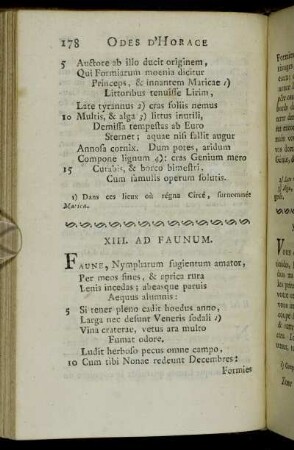 178 ODES D'HORACE
5 Auctore ab illo ducit originem,
Qui Formiarum moenia dicitur
Princeps, & innantem Maricae 1)
Littoribus tenuisse Lirim,
Late tyrannus 2) cras foliis nemus
10 Multis, & alga 3) littus inutili,
Demissa tempestas ab Euro
Sternet; aquae nisi fallit augur
Annosa cornix. Dum potes, aridum
Compone lignum 4): cras Genium mero
15 Curabis, & porco bimestri,
Cum famulis operum solutis.
1) Dans ces lieux où régna Circé, surnommée
Marica.
XIII. AD FAUNUM.
FAUNE, Nympharum fugientum amator,
Per meos fines, & aprica rura
Lenis incedas; abeasque parvis
Aequus alumnis:
5 Si tener pleno cadit hoedus anno,
Larga nec desunt Veneris sodali 1)
Vina craterae, vetus ara multo
Fumat odore.
Ludit herboso pecus omne campo,
10 Cum tibi Nonae redeunt Decembres:
Formies